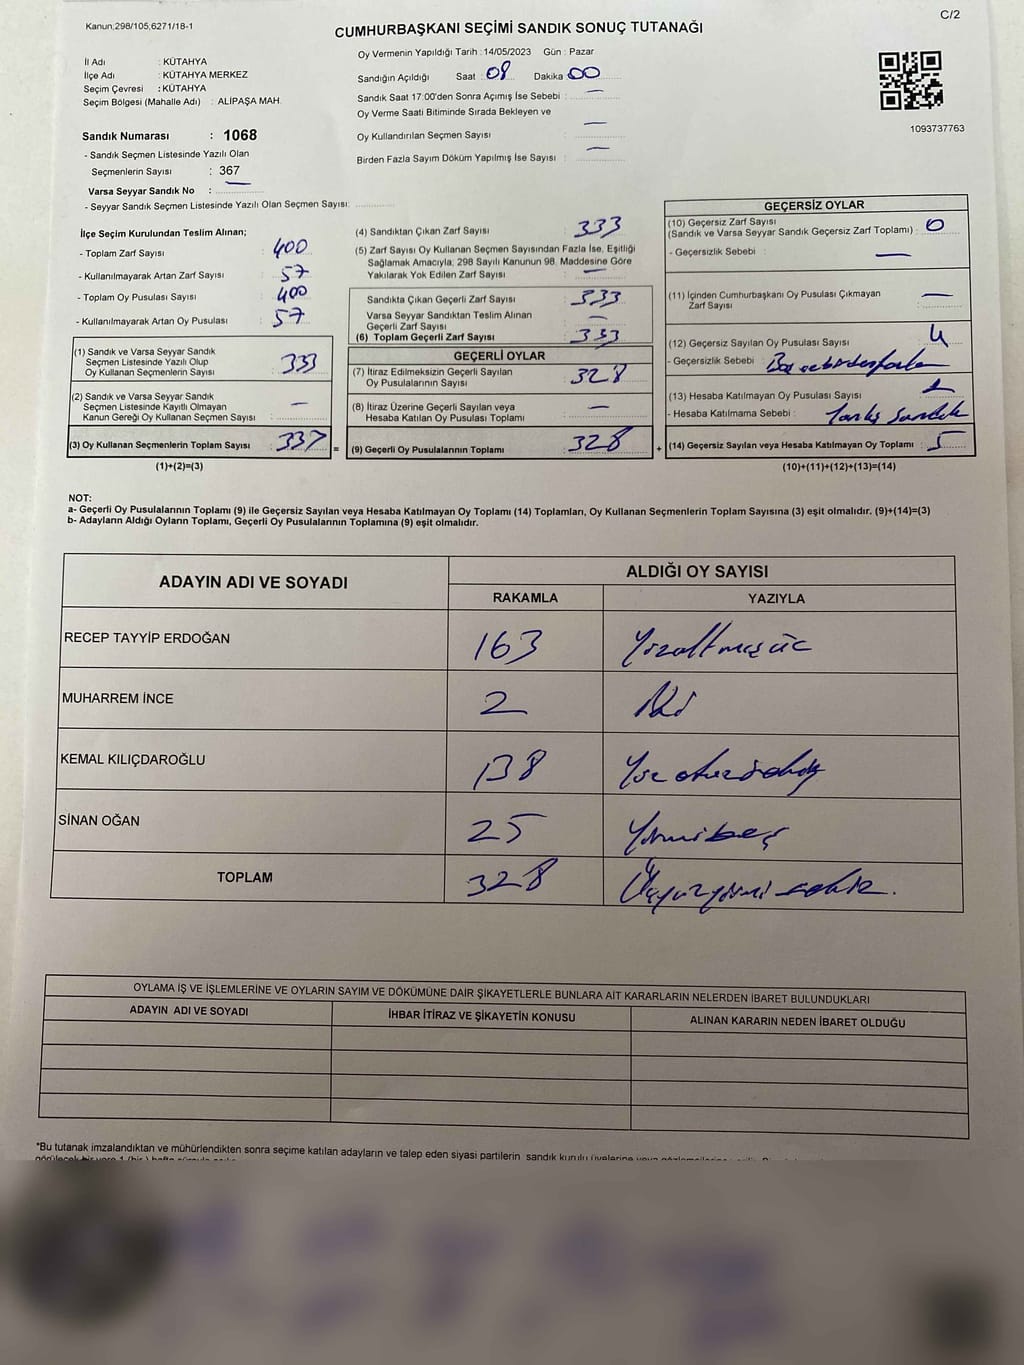 Kanun,298/105,6271/18-1
C/2
CUMHURBAŞKANI SEÇİMİ SANDIK SONUÇ TUTANAĞI
Oy Vermenin Yapıldığı Tarih : 14/05/2023 Gün : Pazar
İl Adı : KÜTAHYA
İlçe Adı : KÜTAHYA MERKEZ
Seçim Çevresi : KÜTAHYA
Seçim Bölgesi (Mahalle Adı) : ALİPAŞA MAH.
Sandık Numarası : 1068
- Sandık Seçmen Listesinde Yazılı Olan
Seçmenlerin Sayısı : 367
Varsa Seyyar Sandık No : —
- Seyyar Sandık Seçmen Listesinde Yazılı Olan Seçmen Sayısı:
Sandığın Açıldığı Saat : 08 Dakika 00
Sandık Saat 17:00'den Sonra Açımış İse Sebebi : —
Oy Verme Saati Bitiminde Sırada Bekleyen ve
Oy Kullandırılan Seçmen Sayısı : —
Birden Fazla Sayım Döküm Yapılmış İse Sayısı : —
1093737763
İlçe Seçim Kurulundan Teslim Alınan;
- Toplam Zarf Sayısı : 400
- Kullanılmayarak Artan Zarf Sayısı : 57
- Toplam Oy Pusulası Sayısı : 400
- Kullanılmayarak Artan Oy Pusulası : 57
(1) Sandık ve Varsa Seyyar Sandık
Seçmen Listesinde Yazılı Olup
Oy Kullanan Seçmenlerin Sayısı : 333
(2) Sandık ve Varsa Seyyar Sandık
Seçmen Listesinde Kayıtlı Olmayan
Kanun Gereği Oy Kullanan Seçmen Sayısı : —
(3) Oy Kullanan Seçmenlerin Toplam Sayısı : 337 =
(1)+(2)=(3)
(4) Sandıktan Çıkan Zarf Sayısı : 333
(5) Zarf Sayısı Oy Kullanan Seçmen Sayısından Fazla İse, Eşitliği
Sağlamak Amacıyla; 298 Sayılı Kanunun 98. Maddesine Göre
Yakılarak Yok Edilen Zarf Sayısı : —
Sandıkta Çıkan Geçerli Zarf Sayısı : 333
Varsa Seyyar Sandıktan Teslim Alınan
Geçerli Zarf Sayısı : —
(6) Toplam Geçerli Zarf Sayısı : 333
GEÇERLİ OYLAR
(7) İtiraz Edilmeksizin Geçerli Sayılan
Oy Pusulalarının Sayısı : 328
(8) İtiraz Üzerine Geçerli Sayılan veya
Hesaba Katılan Oy Pusulası Toplamı : —
(9) Geçerli Oy Pusulalarının Toplamı : 328 +
GEÇERSİZ OYLAR
(10) Geçersiz Zarf Sayısı
(Sandık ve Varsa Seyyar Sandık Geçersiz Zarf Toplamı) : 0
- Geçersizlik Sebebi : —
(11) İçinden Cumhurbaşkanı Oy Pusulası Çıkmayan
Zarf Sayısı : —
(12) Geçersiz Sayılan Oy Pusulası Sayısı : 4
- Geçersizlik Sebebi :
(13) Hesaba Katılmayan Oy Pusulası Sayısı : 1
- Hesaba Katılmama Sebebi : Yanlış Sandık
(14) Geçersiz Sayılan veya Hesaba Katılmayan Oy Toplamı : 5
(10)+(11)+(12)+(13)=(14)
NOT:
a- Geçerli Oy Pusulalarının Toplamı (9) ile Geçersiz Sayılan veya Hesaba Katılmayan Oy Toplamı (14) Toplamları, Oy Kullanan Seçmenlerin Toplam Sayısına (3) eşit olmalıdır. (9)+(14)=(3)
b- Adayların Aldığı Oyların Toplamı, Geçerli Oy Pusulalarının Toplamına (9) eşit olmalıdır.
ADAYIN ADI VE SOYADI
ALDIĞI OY SAYISI
RAKAMLA YAZIYLA
RECEP TAYYİP ERDOĞAN 163 Yüzaltmışüç
MUHARREM İNCE 2 İki
KEMAL KILIÇDAROĞLU 138 Yüz otuzsekiz
SİNAN OĞAN 25 Yirmibeş
TOPLAM 328 Üçyüzyirmi sekiz.
OYLAMA İŞ VE İŞLEMLERİNE VE OYLARIN SAYIM VE DÖKÜMÜNE DAİR ŞİKAYETLERLE BUNLARA AİT KARARLARIN NELERDEN İBARET BULUNDUKLARI
ADAYIN ADI VE SOYADI İHBAR İTİRAZ VE ŞİKAYETİN KONUSU ALINAN KARARIN NEDEN İBARET OLDUĞU
*Bu tutanak imzalandıktan ve mühürlendikten sonra seçime katılan adayların ve talep eden siyasi partilerin sandık kurulu üyelerine veya